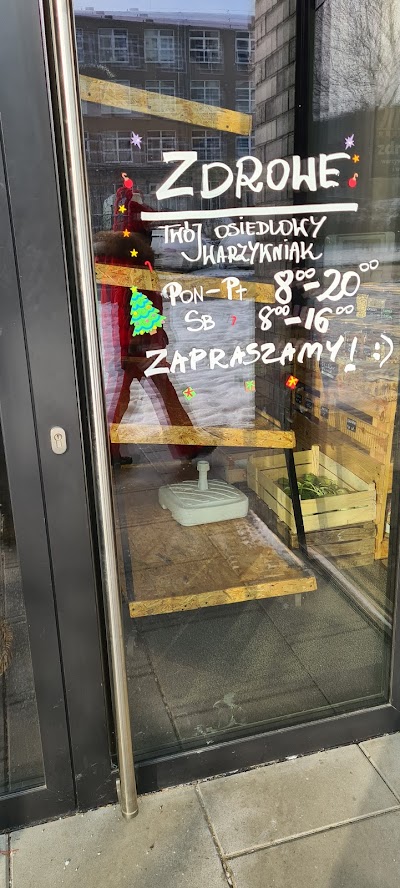 ZDROWE
TWÓJ OSIEDLOWY
WARZYWNIAK
PON-PT 8⁰⁰-20⁰⁰
SB 8⁰⁰-16⁰⁰
ZAPRASZAMY! :)